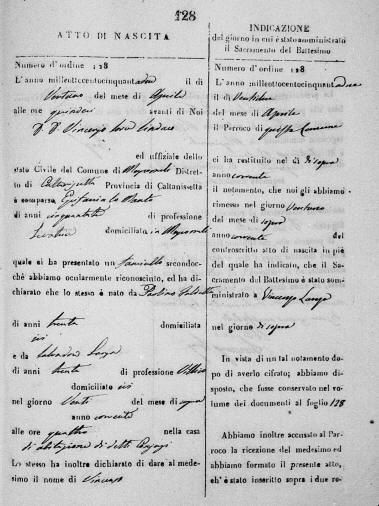 128
ATTO DI NASCITA
Numero d'ordine 128
L'anno milleottocentocinquantadue il dì
Ventuno del mese di Aprile
alle ore quindici avanti di Noi
D. D. Vincenzo Sindaco
ed uffiziale dello
stato Civile del Comune di Distret-
to di Caltanissetta Provincia di Caltanissetta
è comparsa
di anni di professione
domiciliata in
quale ci ha presentato un secondoc-
chè abbiamo ocularmente riconosciuto, ed ha di-
chiarato che lo stesso è nato da
di anni trenta domiciliata
ivi
e da Salvadore
di anni trenta di professione
domiciliato ivi
nel giorno Venti del mese di sopra
anno corrente
alle ore quattro nella casa
di abitazione di detti
Lo stesso ha inoltre dichiarato di dare al mede-
simo il nome di Vincenzo
INDICAZIONE
del giorno in cui è stato amministrato
il Sacramento del Battesimo
Numero d'ordine 128
L'anno milleottocentocinquantadue
il dì Ventuno
del mese di Aprile
il Parroco di questa Comune
ci ha restituito nel dì di sopra
anno corrente
il notamento, che noi gli abbiamo
rimesso nel giorno Ventuno
del mese di sopra
anno corrente del
controscritto atto di nascita in piè
del quale ha indicato, che il Sa-
cramento del Battesimo è stato som-
ministrato a Vincenzo
nel giorno di sopra
In vista di un tal notamento do-
po di averlo cifrato; abbiamo di-
sposto, che fusse conservato nel vo-
lume dei documenti al foglio 128
Abbiamo inoltre accusato al Par-
roco la ricezione del medesimo ed
abbiamo formato il presente atto,
ch'è stato inscritto sopra i due re-